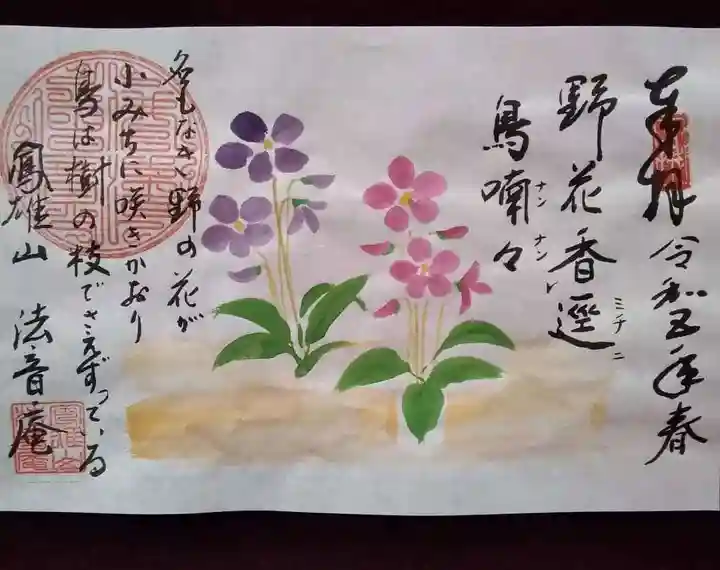 奉拝 令和五年春
野花香逕ミチニ
鳥喃々ナンナント
名もなき野の花が
小みちに咲きかおり
鳥は樹の枝でさえずっている
鳳雄山 法音庵